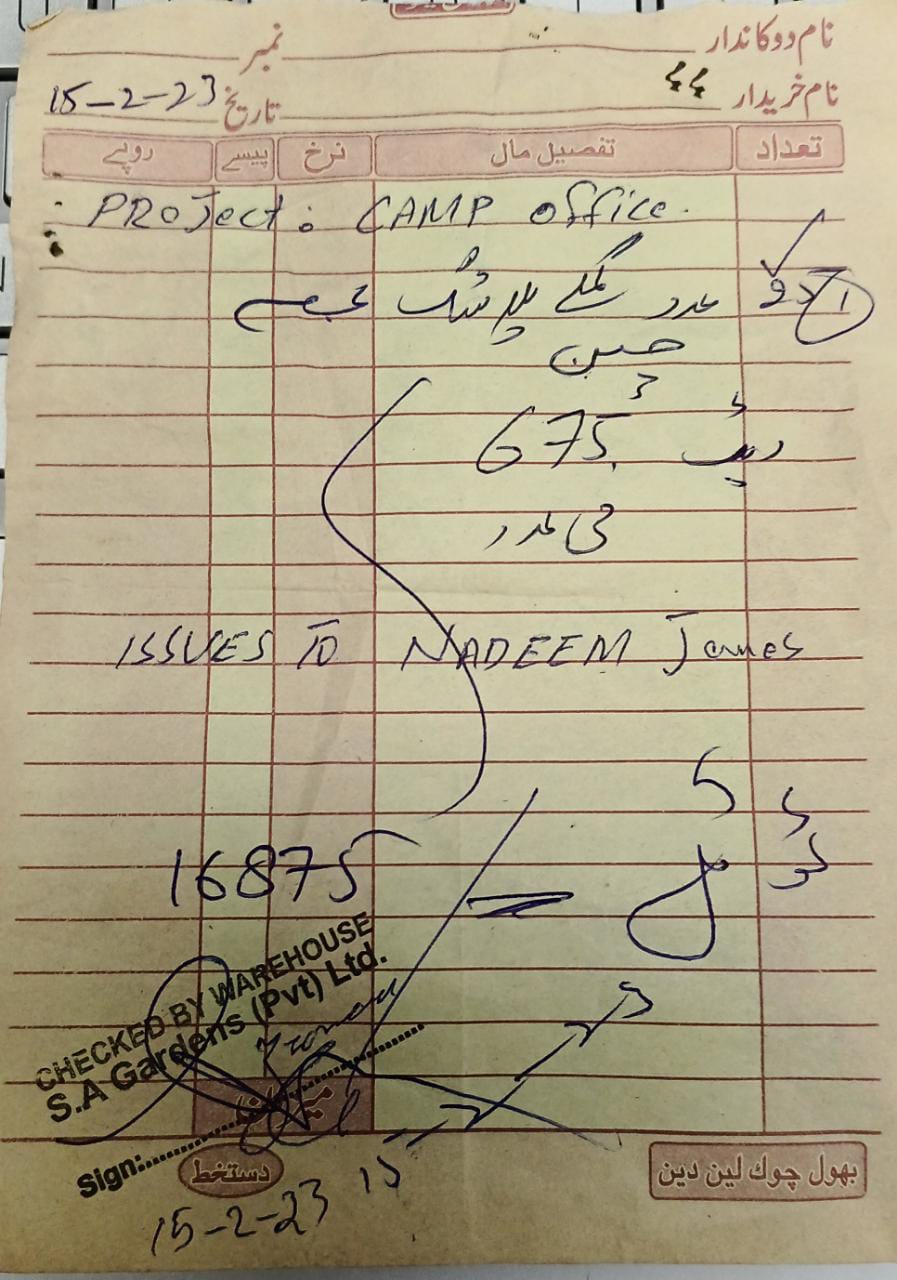 نام دوکاندار نمبر
نام خریدار تاریخ 15-2-23
تعداد تفصیل مال نرخ پیسے روپے
PROJect: CAMP office.
25 عدد گملے پلاسٹک
ریٹ 675
فی عدد
ISSUES TO NADEEM James
ٹوٹل = 16875
CHECKED BY WAREHOUSE
S.A Gardens (Pvt) Ltd.
Sign:
دستخط
بھول چوک لین دین
15-2-23